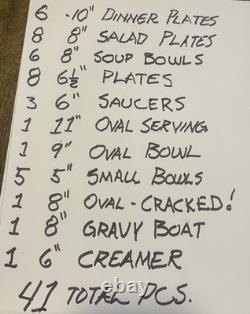 6 -10" DINNER PLATES
8 8" SALAD PLATES
6 8" SOUP BOWLS
8 6½" PLATES
3 6" SAUCERS
1 11" OVAL SERVING
1 9" OVAL BOWL
5 5" SMALL BOWLS
1 8" OVAL - CRACKED!
1 8" GRAVY BOAT
1 6" CREAMER
41 TOTAL PCS.
thumbimg.com